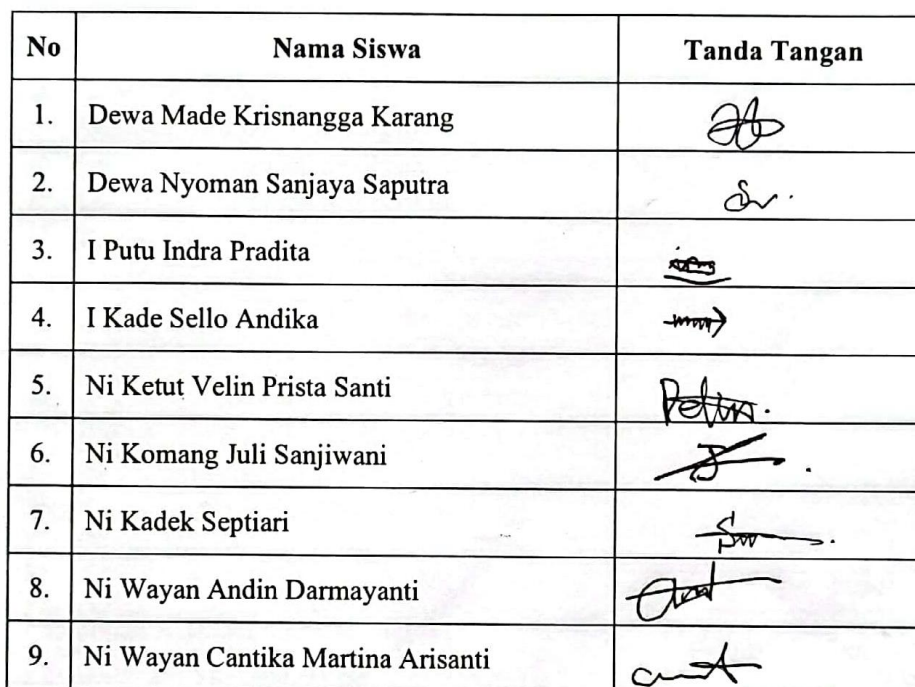 No Nama Siswa Tanda Tangan
1. Dewa Made Krisnangga Karang
2. Dewa Nyoman Sanjaya Saputra
3. I Putu Indra Pradita
4. I Kade Sello Andika
5. Ni Ketut Velin Prista Santi
6. Ni Komang Juli Sanjiwani
7. Ni Kadek Septiari
8. Ni Wayan Andin Darmayanti
9. Ni Wayan Cantika Martina Arisanti